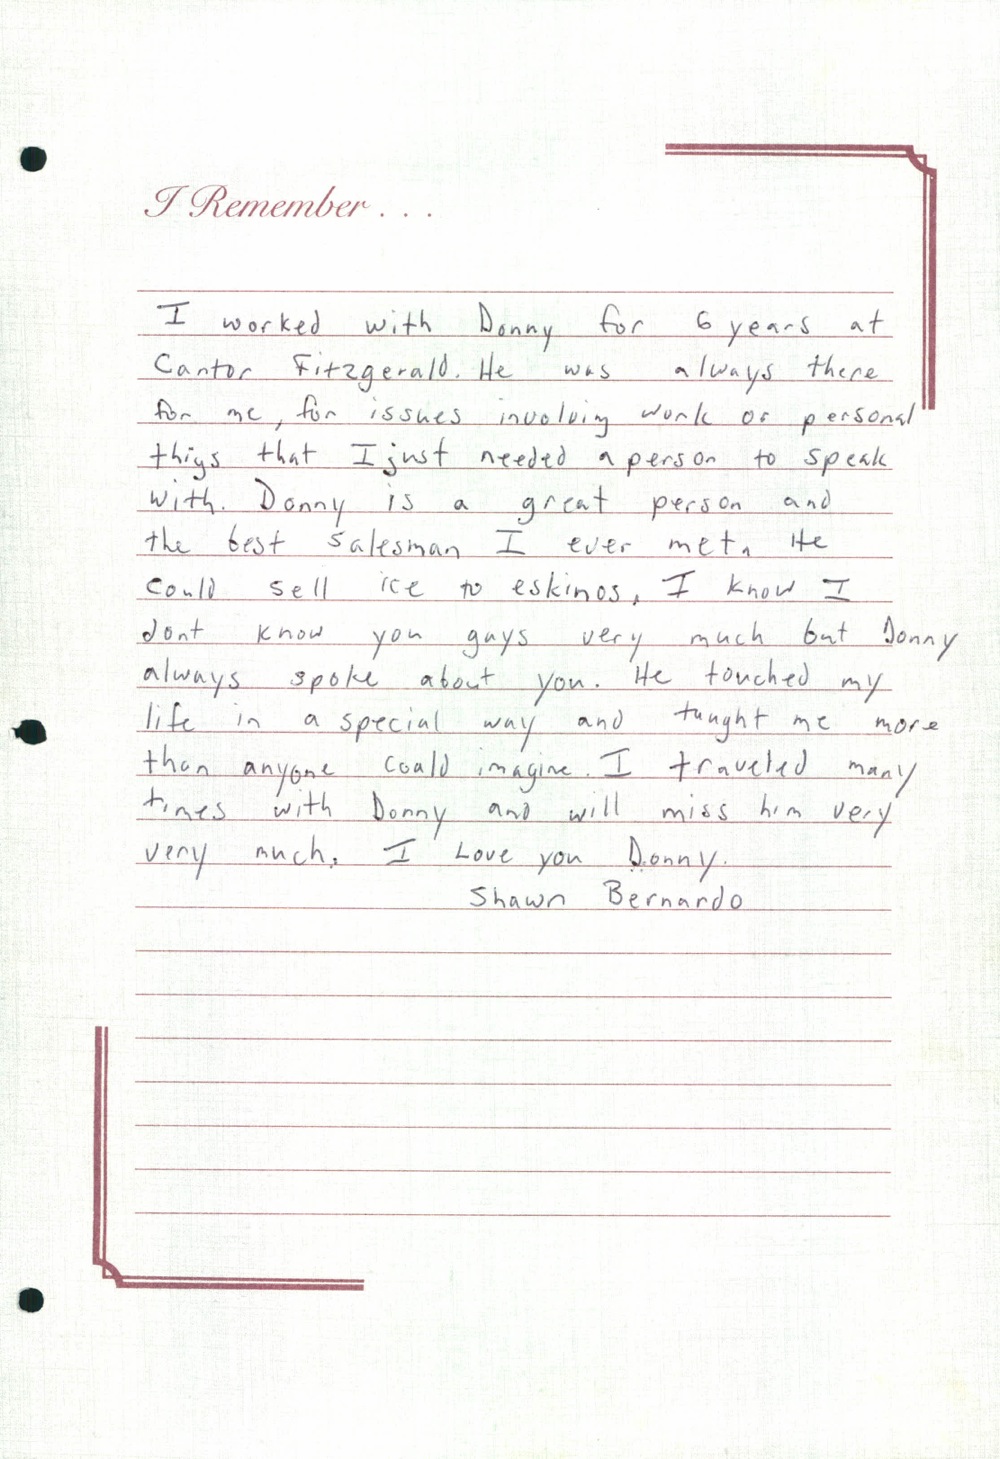 I Remember . . .
I worked with Donny for 6 years at
Cantor Fitzgerald. He was always there
for me, for issues involving work or personal
thigs that I just needed a person to speak
with. Donny is a great person and
the best salesman I ever met. He
could sell ice to eskinos. I know I
dont know you guys very much but Donny
always spoke about you. He touched my
life in a special way and taught me more
than anyone could imagine. I traveled many
times with Donny and will miss him very
very much. I Love you Donny.
Shawn Bernardo